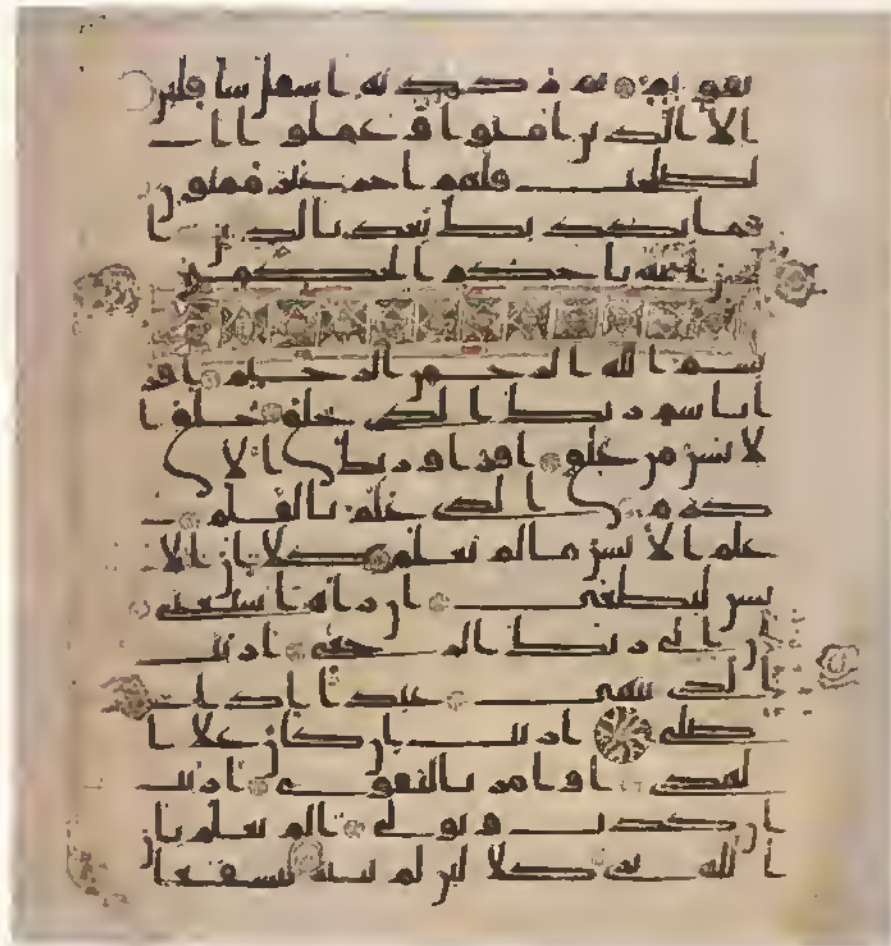 تقويم ثم رددنه اسفل سافلين
الا الذين امنوا وعملوا ا
لصلحت فلهم اجر غير ممنون
فما يكذبك بعد بالدين ا
ليس الله باحكم الحكمين
بسم الله الرحمن الرحيم اقر
ا باسم ربك الذي خلق خلق ا
لانسن من علق اقرا وربك الا
كرم الذي علم بالقلم
علم الانسن ما لم يعلم كلا ان الا
نسن ليطغى ان راه استغنى
ان الى ربك الرجعى اريت
الذي ينهى عبدا اذا
صلى اريت ان كان على ا
لهدى او امر بالتقوى اريت
ان كذب وتولى الم يعلم با
ن الله يرى كلا لئن لم ينته لنسفعا